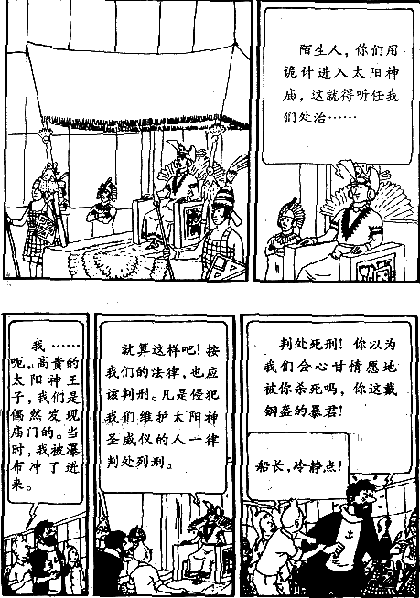 陌生人，你们用
诡计进入太阳神
庙，这就得听任我
们处治……
我……
呃，高贵的
太阳神王
子，我们是
偶然发现
庙门的。当
时，我被瀑
布冲了进
来。
就算这样吧！按
我们的法律，也应
该判刑。凡是侵犯
我们维护太阳神
圣威仪的人一律
判处死刑。
判处死刑！你以为
我们会心甘情愿地
被你杀死吗，你这戴
钢盔的暴君！
船长，冷静点！